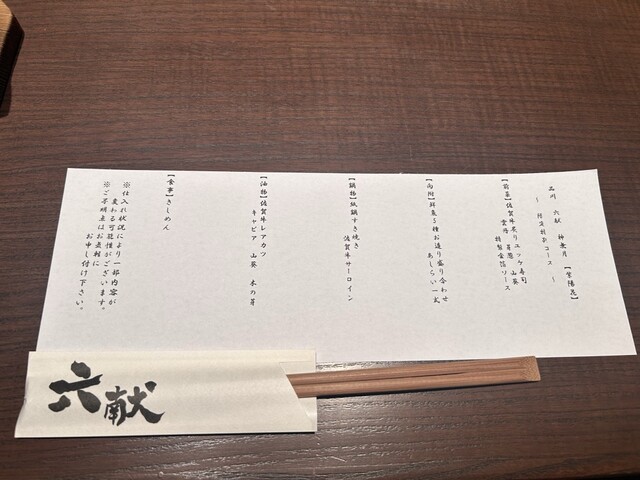 品川 六献 神無月 【紫陽花】
【前菜】佐賀牛炙りユッケ寿司 山葵
雲丹 芽葱
特製金箔ソース
【向附】鮮魚5種お造り盛り合わせ
あしらい一式
【鍋物】紙鍋すき焼き
佐賀牛サーロイン
【油物】佐賀牛レアカツ
キャビア 山葵 木の芽
【食事】きしめん
※仕入れ状況により一部内容が
変わる可能性がございます。
※ご不明点はお気軽に
お申し付け下さい。
六献